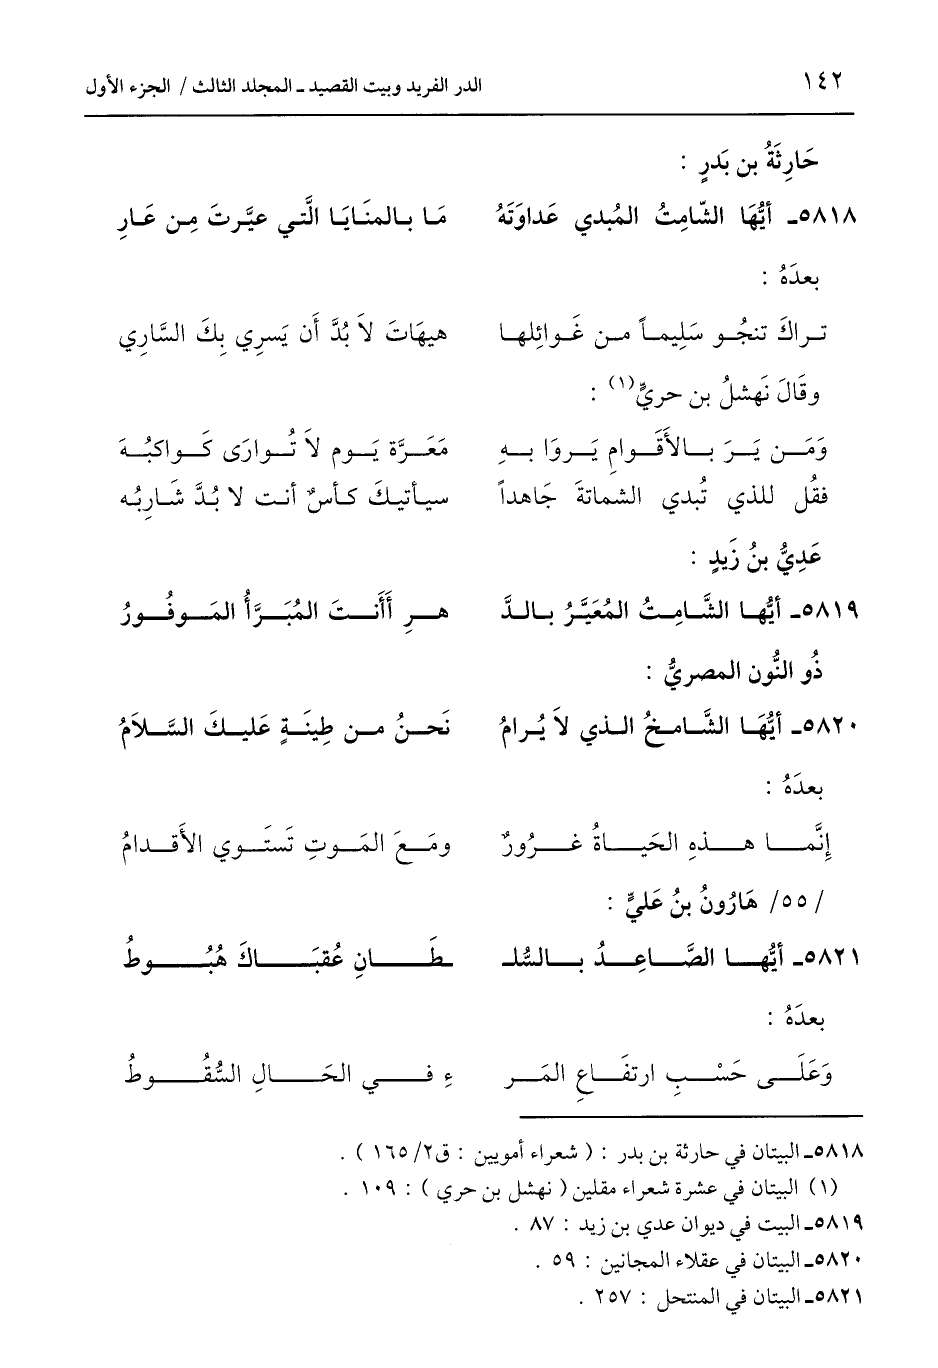 ١٤٢ الدر الفريد وبيت القصيد ـ المجلد الثالث / الجزء الأول
حَارِثَةُ بن بَدرٍ :
٥٨١٨ـ أيُّهَا الشّامِتُ المُبدي عَداوَتَهُ مَا بالمنَايَا الَّتي عيَّرتَ مِن عَارِ
بعدَهُ :
تراكَ تنجُو سَلِيماً من غَوائلِها هيهَاتَ لاَ بُدَّ أَن يَسرِي بِكَ السَّارِي
وقَالَ نَهشلُ بن حريٍّ(١) :
وَمَن يَرَ بالأَقوامِ يَروا بهِ مَعَرَّة يَوم لاَ تُوارَى كَواكبُهَ
فقُل للذي تُبدي الشماتةَ جَاهداً سيأتيكَ كأسٌ أنت لا بُدَّ شَاربُه
عَدِيُّ بنُ زَيدٍ :
٥٨١٩ـ أيُّها الشَّامِتُ المُعَيَّرُ بالدَّ هرِ أَأَنتَ المُبَرَّأُ الموفُورُ
ذُو النُّون المصريُّ :
٥٨٢٠ـ أيُّهَا الشَّامخُ الذي لاَ يُرامُ نَحنُ من طِينَةٍ عَليكَ السَّلاَمُ
بعدَهُ :
إنَّما هذهِ الحَياةُ غرُورٌ ومَعَ الموتِ تَستَوي الأَقدامُ
/٥٥/ هَارُونُ بنُ عَليٍّ :
٥٨٢١ـ أيُّها الصَّاعِدُ بالسُّلـ ـطَانِ عُقبَاكَ هُبُوطُ
بعدَهُ :
وَعَلَى حَسْبِ ارتفَاعِ المَر ءِ في الحَالِ السُّقُوطُ
٥٨١٨ـ البيتان في حارثة بن بدر : ( شعراء أمويين : ق٢/ ١٦٥ ) .
(١) البيتان في عشرة شعراء مقلين ( نهشل بن حري ) : ١٠٩ .
٥٨١٩ـ البيت في ديوان عدي بن زيد : ٨٧ .
٥٨٢٠ـ البيتان في عقلاء المجانين : ٥٩ .
٥٨٢١ـ البيتان في المنتحل : ٢٥٧ .